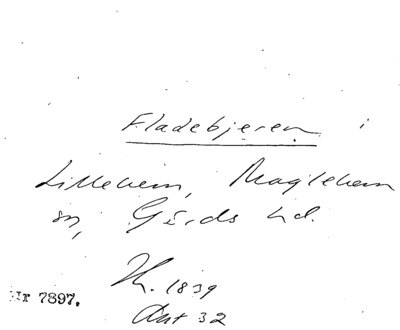 Fladebjeren i
Lillehem, Maglehem
sn, Gärds hd.
Th. 1839
Akt 32
Nr 7897.